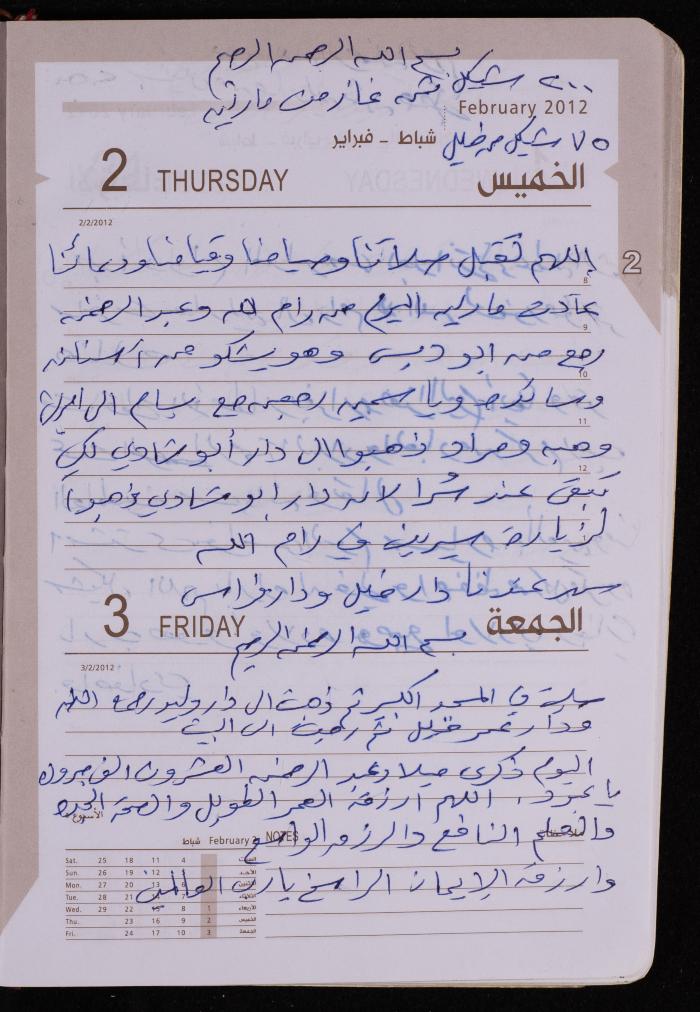 بسم الله الرحمن الرحيم
٢٠٠ شيكل ثمن غاز من مارتين
٧٥ شيكل من خليل
February 2012
شباط - فبراير
2 THURSDAY الخميس
2/2/2012
2
اللهم تقبل صلاتنا وصيامنا وقيامنا ودعائنا
عادت مارلين اليوم من رام الله وعبد الرحمن
رجع من ابو ديس وهو يشكو من أسنانه
وسائده وياسمين رجعن مع بسام الى
وهبه ومراد ذهبوا ال دار أبو شادي لكي
تبقى عند يسرا لان دار ابو شادي ذهبوا
لزيارة سيرين في رام الله
سهر عندنا دار خليل ودار فراس
3 FRIDAY الجمعة
بسم الله الرحمن الرحيم
3/2/2012
صليت في المسجد الكبير ثم ذهبت ال دار وليد رحمه الله
ودار عمر خليل ثم رجعت الى البيت
اليوم ذكرى ميلاد عبد الرحمن العشرون الف مبروك
يا عبود، اللهم ارزقه العمر الطويل والصحة الجيدة
والعلم النافع والرزق الواسع
وارزقه الإيمان الراسخ يا رب العالمين
الأسبوع
NOTES ملاحظات
February 2 شباط
Sat. 25 18 11 4 السبت
Sun. 26 19 12 5 الأحد
Mon. 27 20 13 6 الاثنين
Tue. 28 21 14 7 الثلاثاء
Wed. 29 22 15 8 1 الأربعاء
Thu. 23 16 9 2 الخميس
Fri. 24 17 10 3 الجمعة